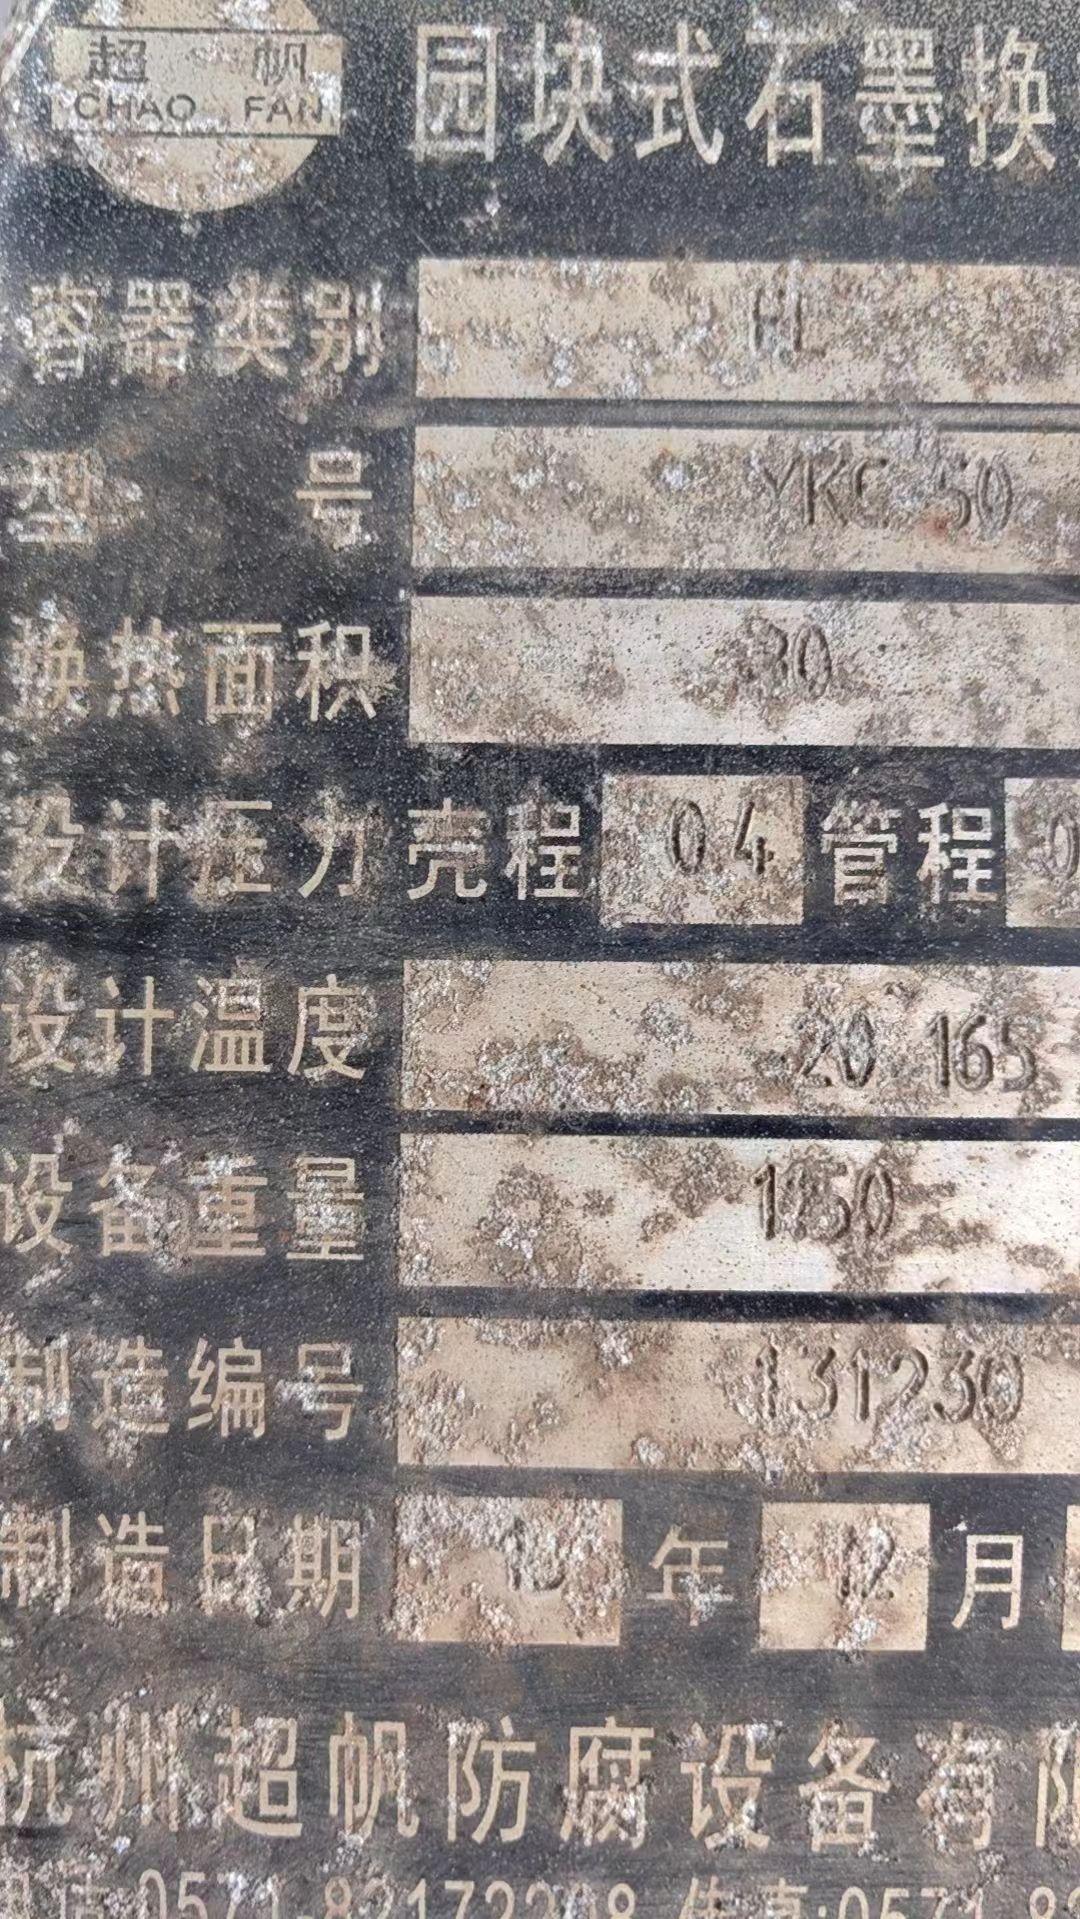 超 帆
CHAO FAN
园块式石墨换
容器类别
型 号 YKC 50
换热面积 30
设计压力 壳程 0.4 管程 0
设计温度 20 165
设备重量 1250
制造编号 131230
制造日期 13 年 12 月
杭州超帆防腐设备有限
0571-82172208 传真:0571-82